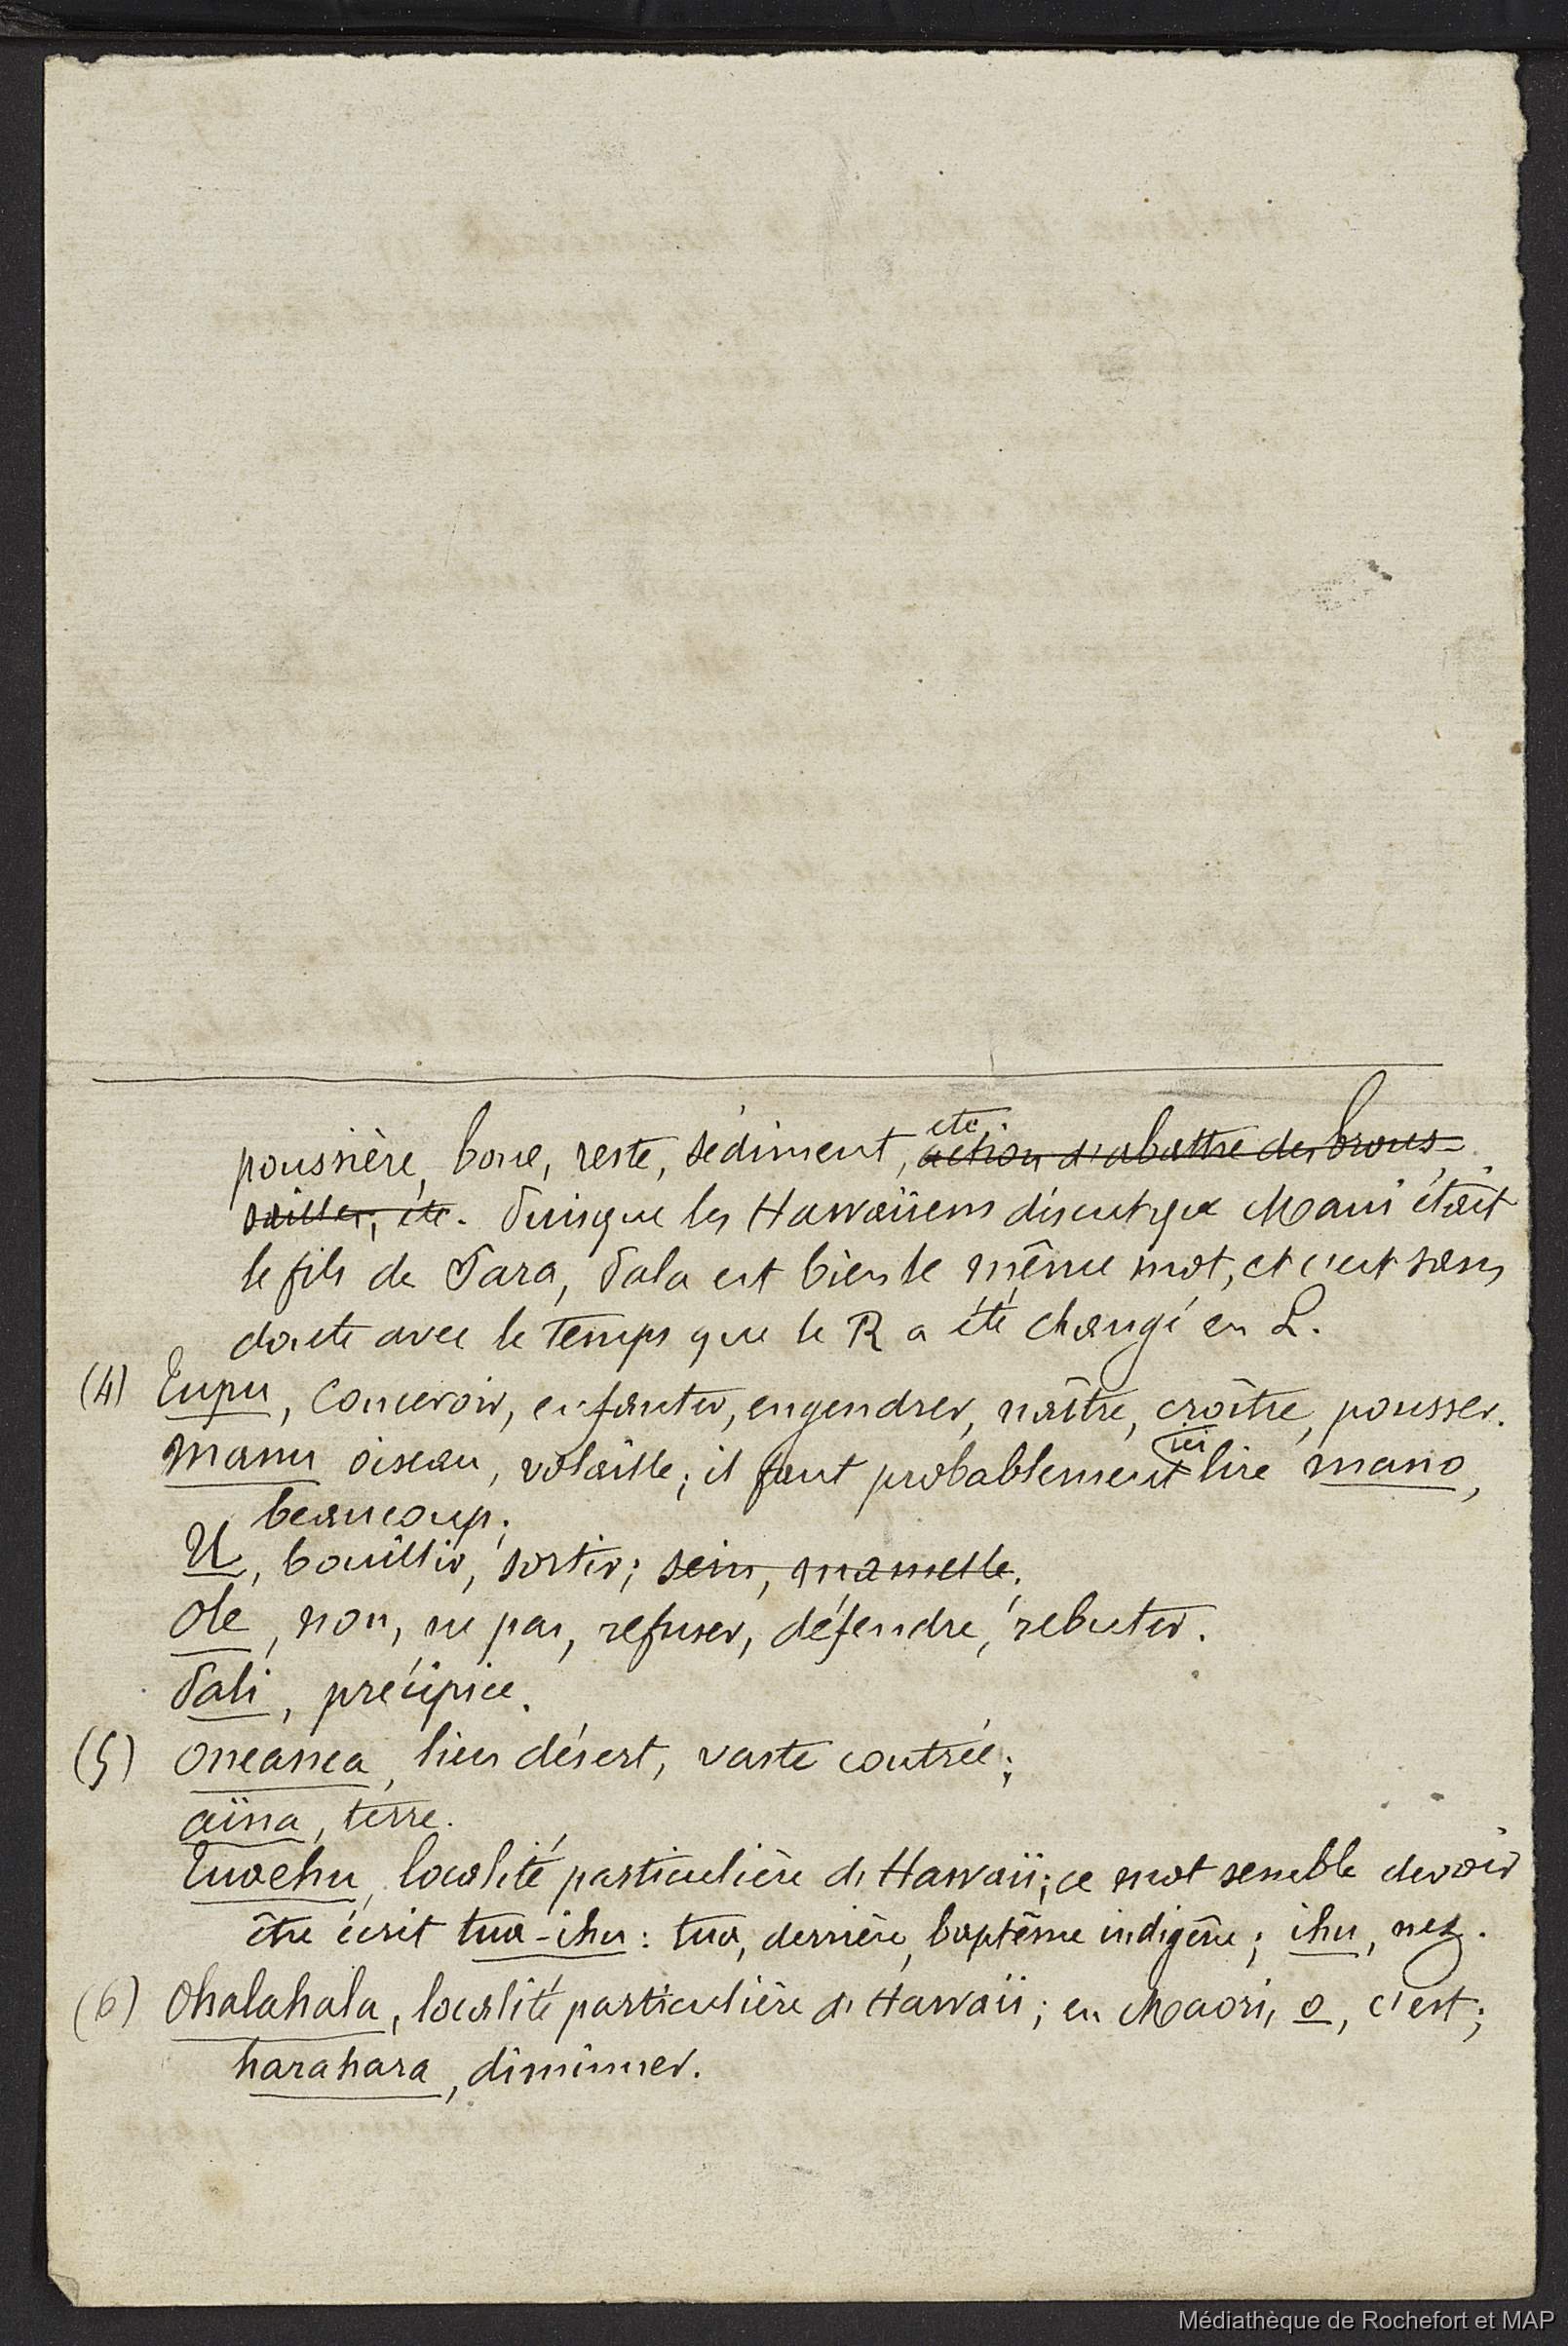 poussière, boue, reste, sédiment, etc. action d'abattre des brous-
sailles, etc. Puisque les Hawaiiens disent que Maui était
le fils de Para, Pala est bien le même mot, et c'est sans
doute avec le temps que le R a été changé en L.
(4) Tupu, concevoir, enfanter, engendrer, naître, croître, pousser.
Manu oiseau, volaille; il faut probablement ici lire mano,
beaucoup;
U, bouillir, sortir; sein, mamelle.
Ole, non, ne pas, refuser, défendre, rebuter.
Pali, précipice.
(5) Oneanea, lieu désert, vaste contrée;
aïna, terre.
Tuaehu, localité particulière d'Hawaii; ce mot semble devoir
être écrit tua-ihu: tua, derrière, baptême indigène; ihu, nez.
(6) Ohalahala, localité particulière d'Hawaii; en Maori, o, c'est;
harahara, diminuer.
Médiathèque de Rochefort et MAP